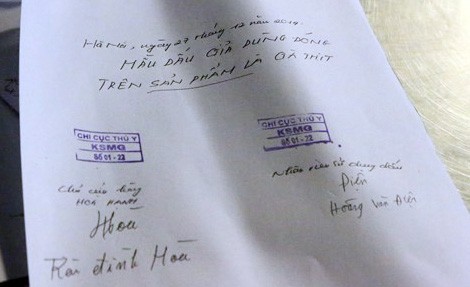 Hà Nội, ngày 27 tháng 12 năm 2017.
MẪU DẤU GIẢ DÙNG ĐÓNG
TRÊN SẢN PHẨM LÀ GÀ THỊT
CHI CỤC THÚ Y
KSMG
05 01 - 22
CHI CỤC THÚ Y
KSMG
05 01 - 22
Chủ cửa hàng
HOÀ HẠNH
Hoà
Bùi Đình Hoà
Nhân viên sử dụng dấu
Điện
Hoàng Văn Điện